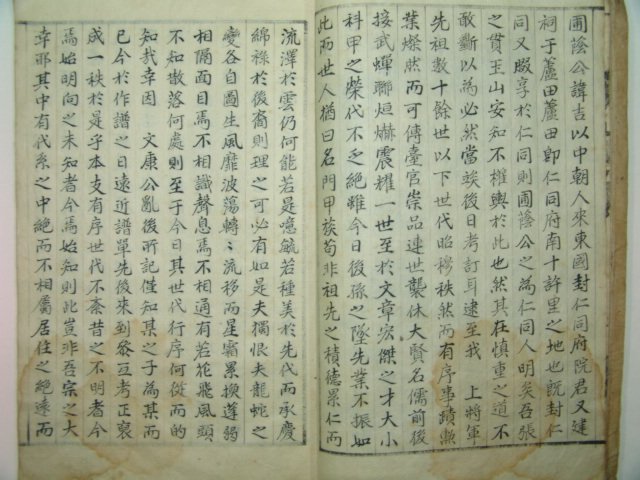 圃蔭公諱吉以中朝人來東國封仁同府院君又建
祠于蘆田蘆田卽仁同府南十許里之地也旣封仁
同又腏享於仁同則圃蔭公之爲仁同人明矣吾張
之貫玉山安知不權輿於此也然其在愼重之道不
敢斷以爲必然當竢後日考訂耳逮至我 上將軍
先祖數十餘世以下世代昭穆秩然而有序事蹟勳
業燦然而可傳臺官崇品連世襲休大賢名儒前後
接武蟬聯烜爀震耀一世至於文章宏傑之才大小
科甲之榮代不乏絕雖今日後孫之墜先業不振如
此而世人猶曰名門甲族苟非祖先之積德累仁而
流澤於雲仍何能若是噫毓若種美於先代而承慶
綿祿於後裔則理之可必有如是夫獨恨夫龍蛇之
變各自圖生風靡波蕩轉〻流移而星霜累換蓬弱
相隔面目焉不相識聲息焉不相通有若花飛風頭
不知散落何處則至于今日其世代行序何從而的
知哉幸因 文康公亂後所記僅知某之子爲某而
已今於作譜之日遠近譜單先後來到叅互考正裒
成一秩於是乎本支有序世代不紊昔之不明者今
焉始明向之未知者今焉始知則此豈非吾宗之大
幸耶其中有代系之中絕而不相屬居住之絕遠而